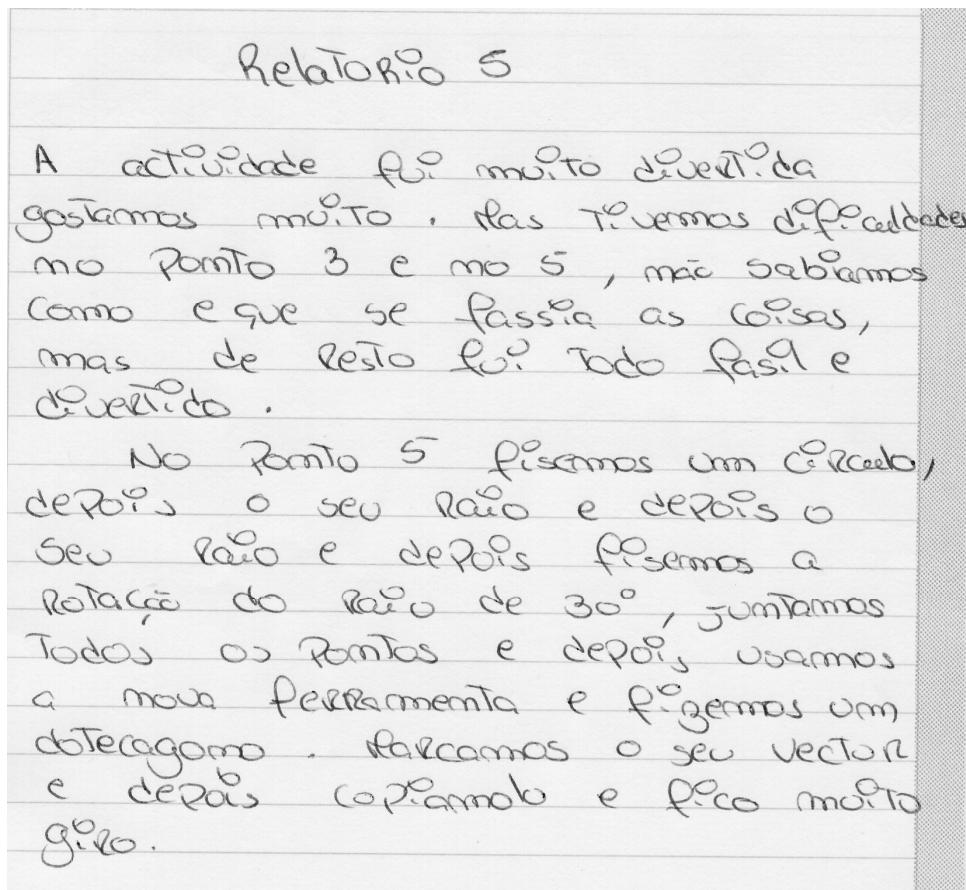 Relatorio 5
A actividade foi muito divertida
gostamos muito. Mas tivemos dificuldades
no ponto 3 e no 5, não sabiamos
como e que se fassia as coisas,
mas de resto foi todo fasil e
divertido.
No ponto 5 fisemos um circulo,
depois o seu raio e depois o
seu raio e depois fisemos a
rotação do raio de 30°, juntamos
todos os pontos e depois usamos
a nova ferramenta e fizemos um
dotecagono. Marcamos o seu vector
e depois copiamolo e fico muito
giro.